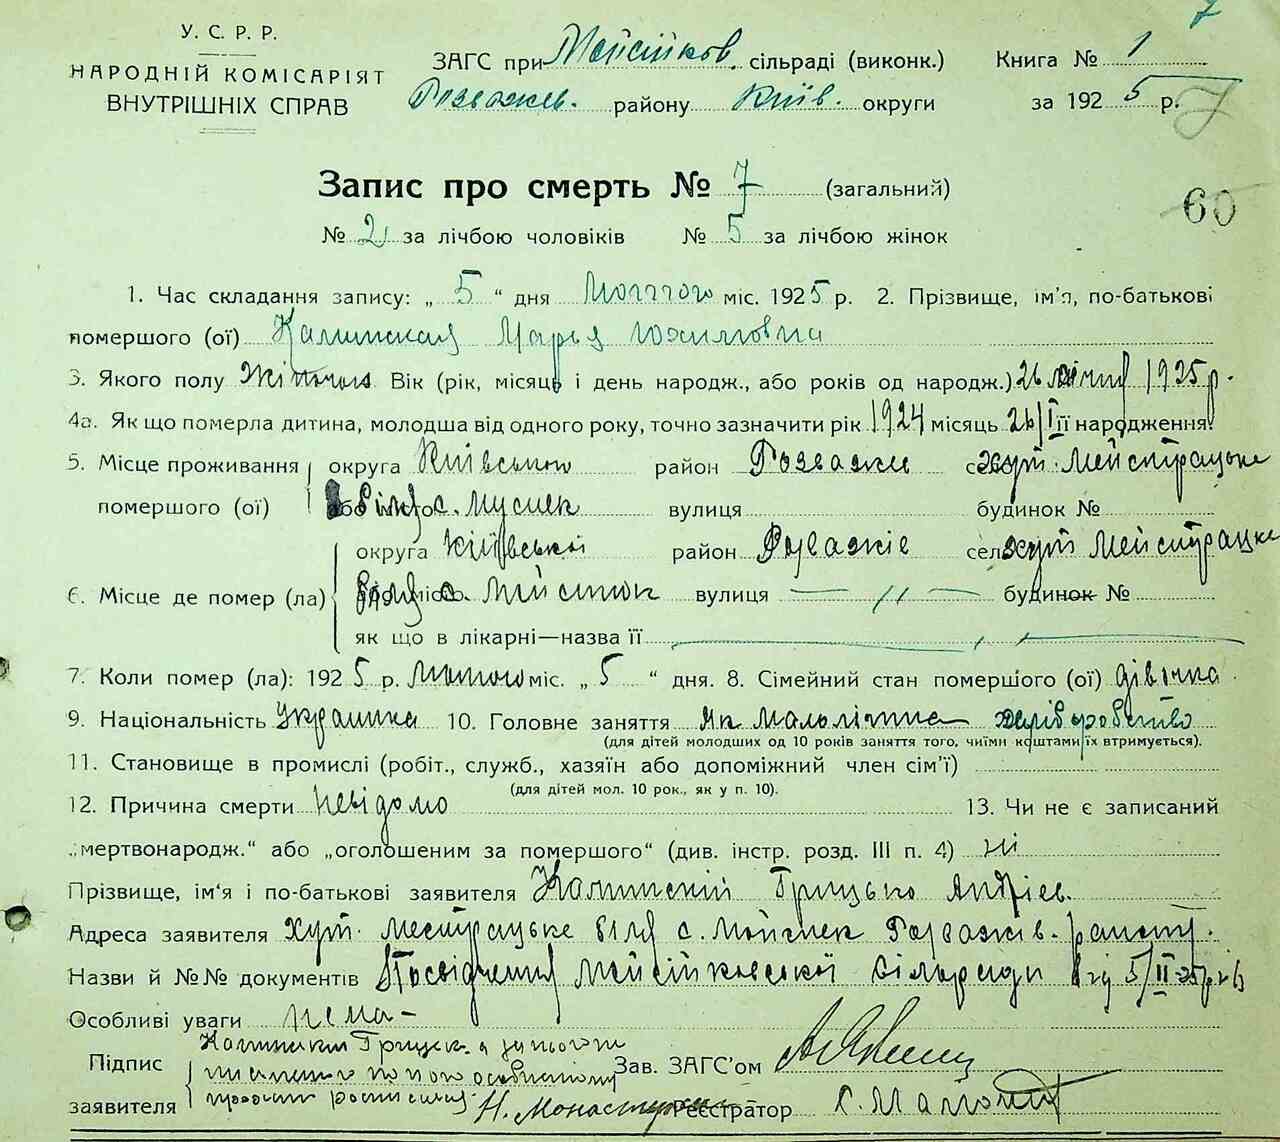 7
У. С. Р. Р.
НАРОДНІЙ КОМІСАРІЯТ
ВНУТРІШНІХ СПРАВ
ЗАГС при Мейсійков. сільраді (виконк.) Книга № 1
Розважев. району Київ. округи за 1925 р. 7
Запис про смерть № 7 (загальний)
60
№ 2 за лічбою чоловіків № 5 за лічбою жінок
1. Час складання запису: „ 5 “ дня Лютого міс. 1925 р. 2. Прізвище, ім'я, по-батькові
помершого (ої) Калинская Марья Юхимовна
3. Якого полу Жіночого Вік (рік, місяць і день народж., або років од народж.) 26 1925 р.
4а. Як що померла дитина, молодша від одного року, точно зазначити рік 1924 місяць 26/I її народження.
5. Місце проживання округа Київської район Розважів хут. Мейстрацьке
помершого (ої) біля с. вулиця будинок №
округа Київської район Розважів хут Мейстрацьке
6. Місце де помер (ла) біля с. вулиця — 〃 — будинок №
як що в лікарні—назва її
7. Коли помер (ла): 1925 р. Лютого міс. „ 5 “ дня. 8. Сімейний стан помершого (ої) дівочка
9. Національність Украинка 10. Головне заняття як Малолітна хліборобство
(для дітей молодших од 10 років заняття того, чиїми коштами їх втримується).
11. Становище в промислі (робіт., служб., хазяїн або допоміжний член сім'ї)
(для дітей мол. 10 рок., як у п. 10).
12. Причина смерти Невідомо 13. Чи не є записаний
„мертвонародж.“ або „оголошеним за помершого“ (див. інстр. розд. III п. 4) ні
Прізвище, ім'я і по-батькові заявителя Калинский Грицько Андріев.
Адреса заявителя Хут. Местрацьке біля с. Розважів. району.
Назви й №№ документів Посвідчення Мейсійковської Сільради від 5/II-25 р.
Особливі уваги нема -
Підпис Зав. ЗАГС'ом
заявителя Н. Реєстратор